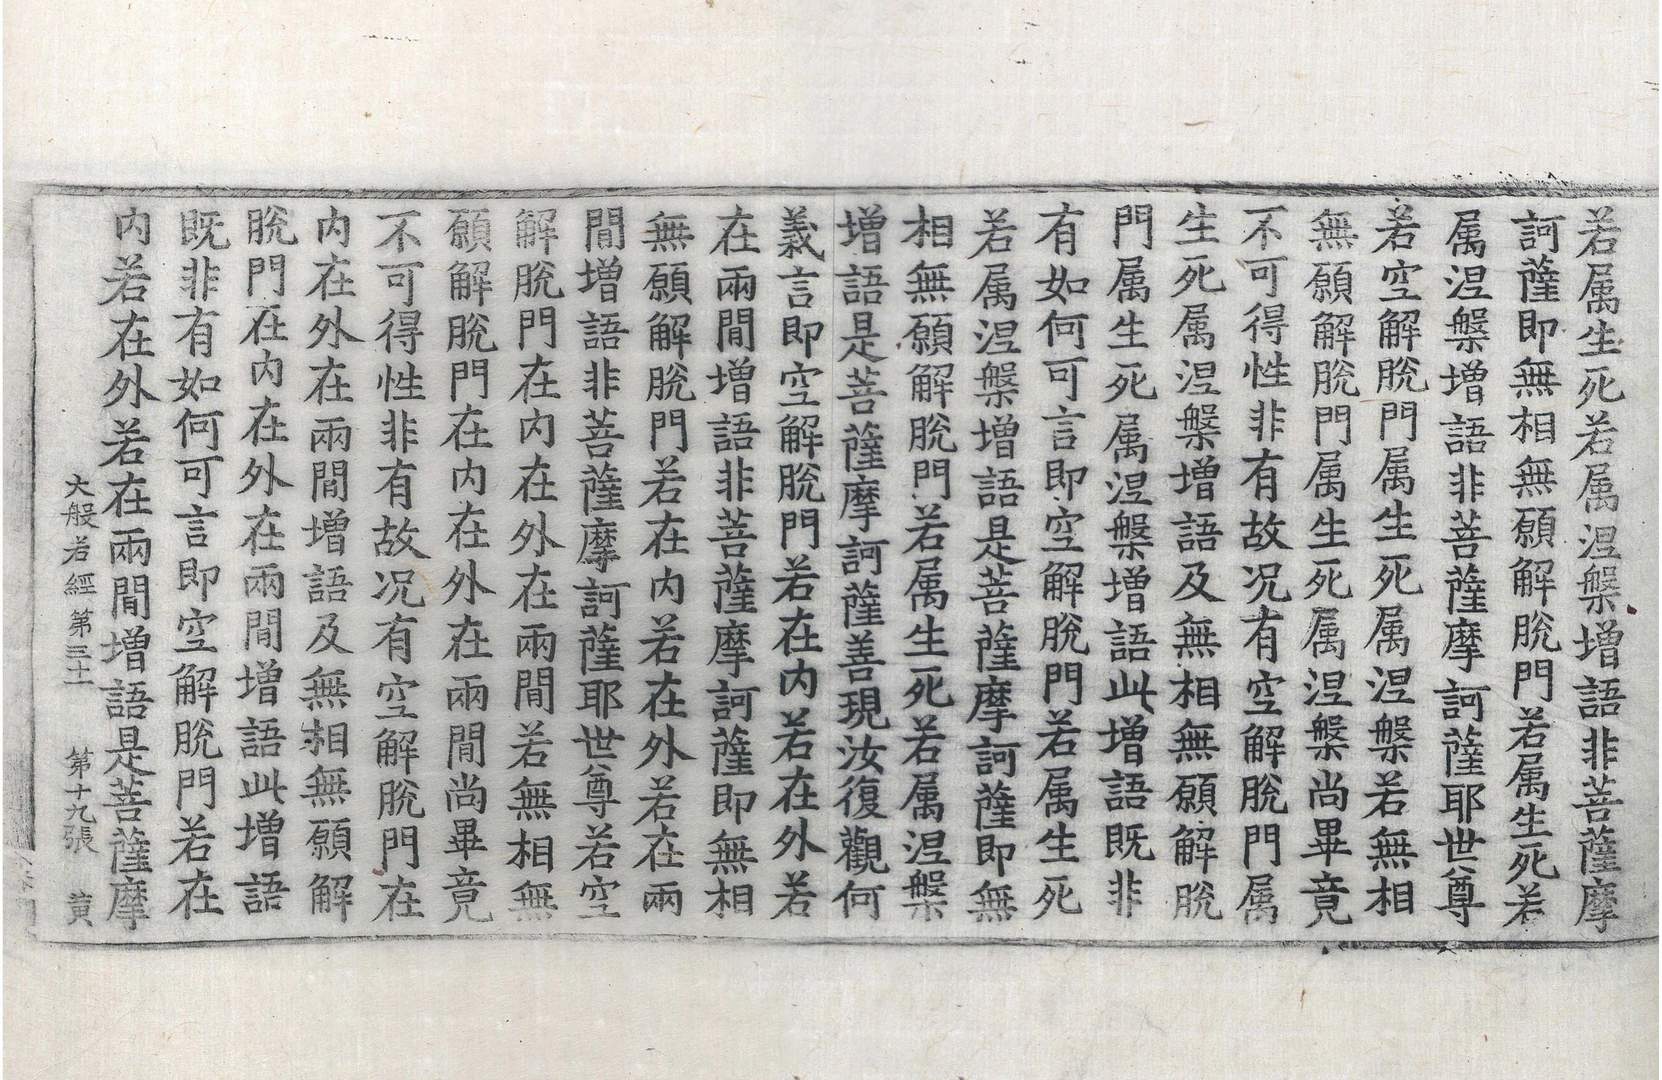 若属生死若属涅槃增語非菩薩摩
訶薩即無相無願解脫門若属生死若
属涅槃增語非菩薩摩訶薩耶世尊
若空解脫門属生死属涅槃若無相
無願解脫門属生死属涅槃尚畢竟
不可得性非有故况有空解脫門属
生死属涅槃增語及無相無願解脫
門属生死属涅槃增語此增語既非
有如何可言即空解脫門若属生死
若属涅槃增語是菩薩摩訶薩即無
相無願解脫門若属生死若属涅槃
增語是菩薩摩訶薩善現汝復觀何
義言即空解脫門若在内若在外若
在兩閒增語非菩薩摩訶薩即無相
無願解脫門若在内若在外若在兩
閒增語非菩薩摩訶薩耶世尊若空
解脫門在内在外在兩閒若無相無
願解脫門在内在外在兩閒尚畢竟
不可得性非有故况有空解脫門在
内在外在兩閒增語及無相無願解
脫門在内在外在兩閒增語此增語
既非有如何可言即空解脫門若在
内若在外若在兩閒增語是菩薩摩
大般若經第三十一 第十九張 黄